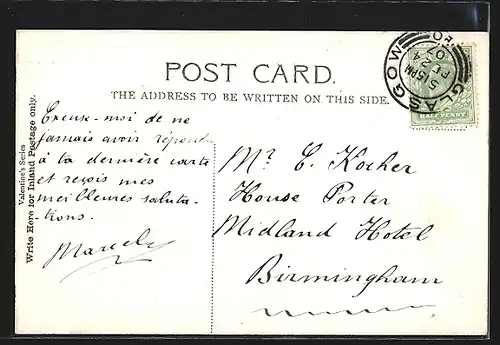 POST CARD.
THE ADDRESS TO BE WRITTEN ON THIS SIDE.
Valentine's Series
Write Here for Inland Postage only.
Excuse-moi de ne
jamais avoir répondu
à la dernière carte
et reçois mes
meilleures saluta-
tions.
Marcel
Mr. E. Kocher
House Porter
Midland Hotel
Birmingham
GLASGOW
5 15PM
FE 24
07
HALF PENNY